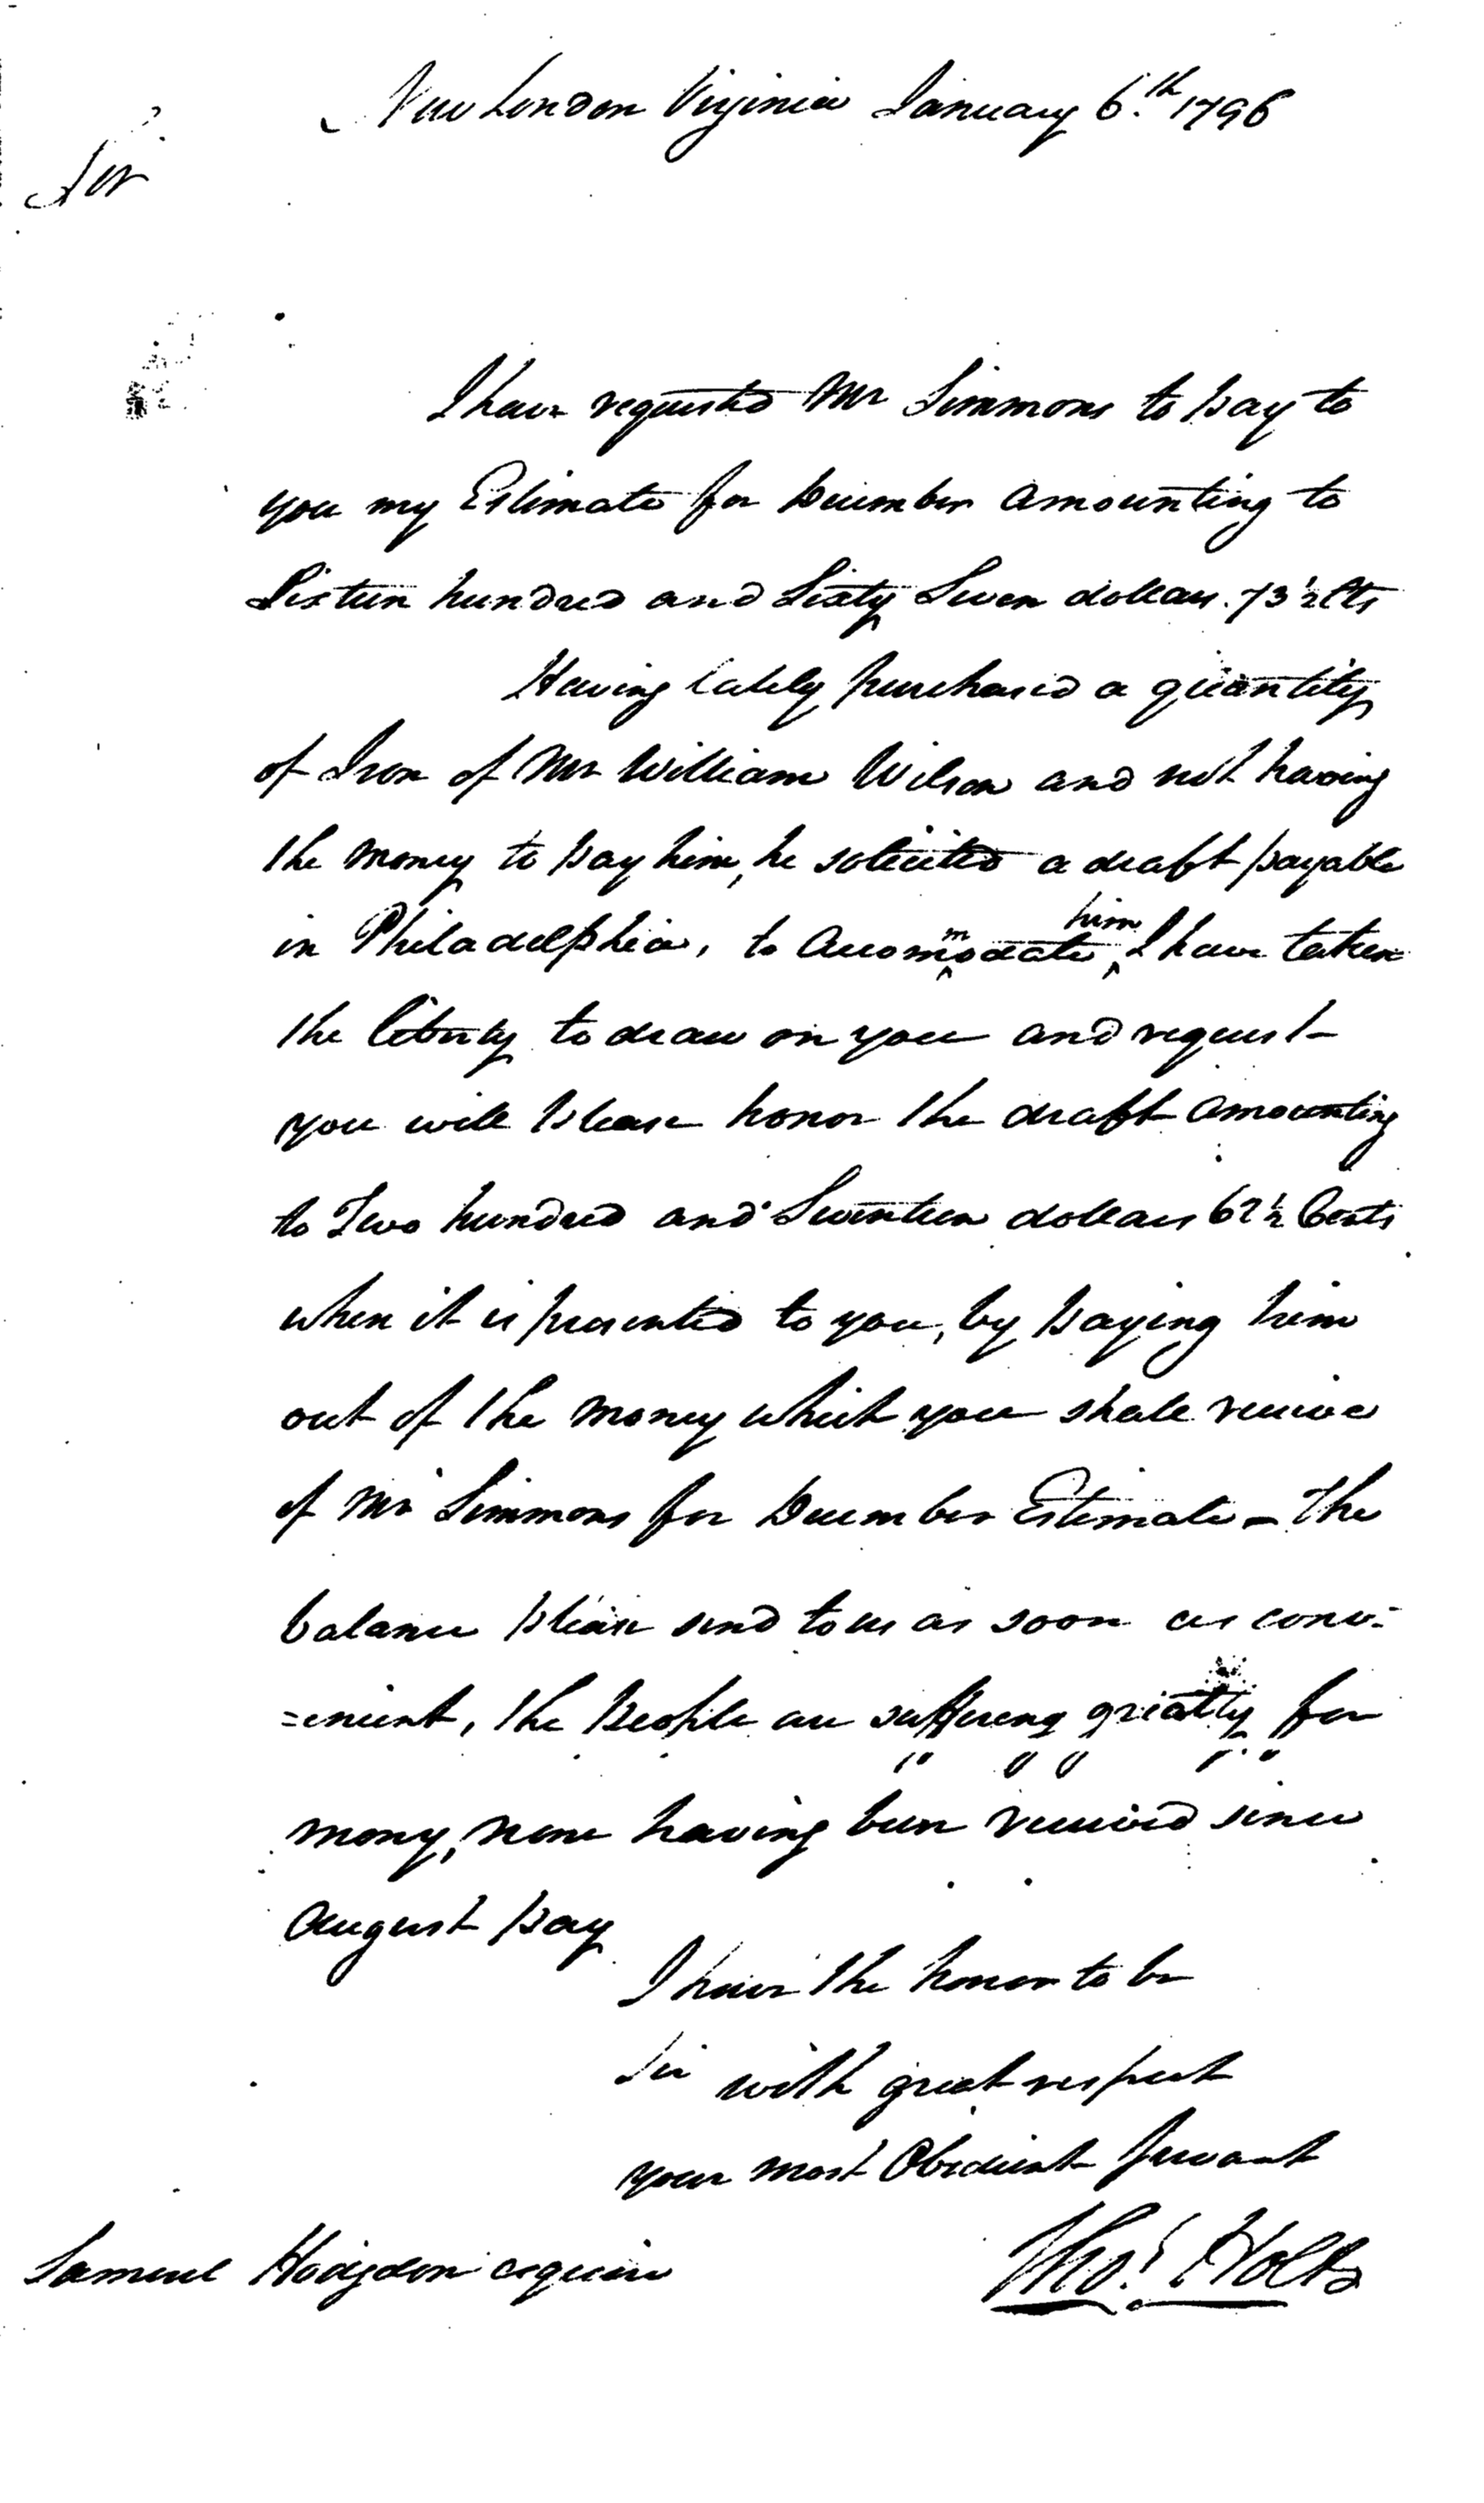 New London Virginia January 6.th 1796
Sir
I have requested Mr Simmons to pay to
you my Estimate for December amounting to
Sixteen hundred and Sixty Seven dollars. 73 1/2 Cts
Having lately purchased a quantity
of Iron of Mr William Wilson and not having
the money to pay him, he solicited a draft payable
in Philadelphia, to accommodate him I have taken
the liberty to draw on you and request
you will please honor the draft amounting
to Two hundred and Seventeen dollars 62 1/2 Cents
when it is presented to you, by paying him
out of the money which you shall receive
of Mr Simmons for December Estimate - The
balance please send to us as soon as conv-
=enient, the people are suffering greatly for
mony, none having been received since
August pay
I have the honor to be
Sir with great respect
your most Obedient Servant
Samuel Hodgdon esquire Thos. Holt